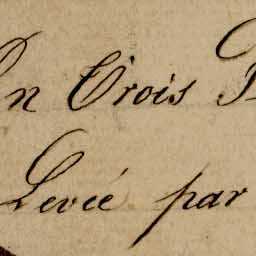 en Trois P
Levée par